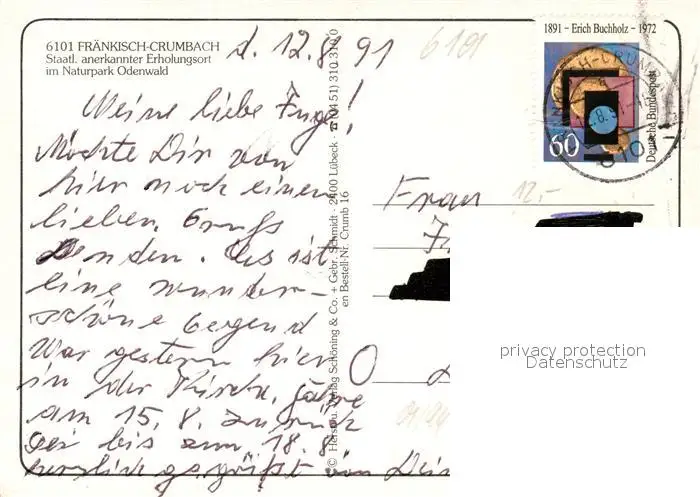 6101 FRÄNKISCH-CRUMBACH
Staatl. anerkannter Erholungsort
im Naturpark Odenwald
d. 12.8.91
Meine liebe Inge!
Möchte Dir von
hier noch einen
lieben Gruß
senden. Es ist
eine wunder-
schöne Gegend
War gestern hier
in der Kirche, fahre
am 15.8. zurück
bis zum 18.8.
herzlich gegrüßt von Dein
© Herst. u. Verlag Schöning & Co. + Gebr. Schmidt · 2400 Lübeck · ☎ (04 51) 310 310
en Bestell-Nr. Crumb 16
6101
1891 – Erich Buchholz – 1972
Deutsche Bundespost
60
Frau
12,-
privacy protection
Datenschutz